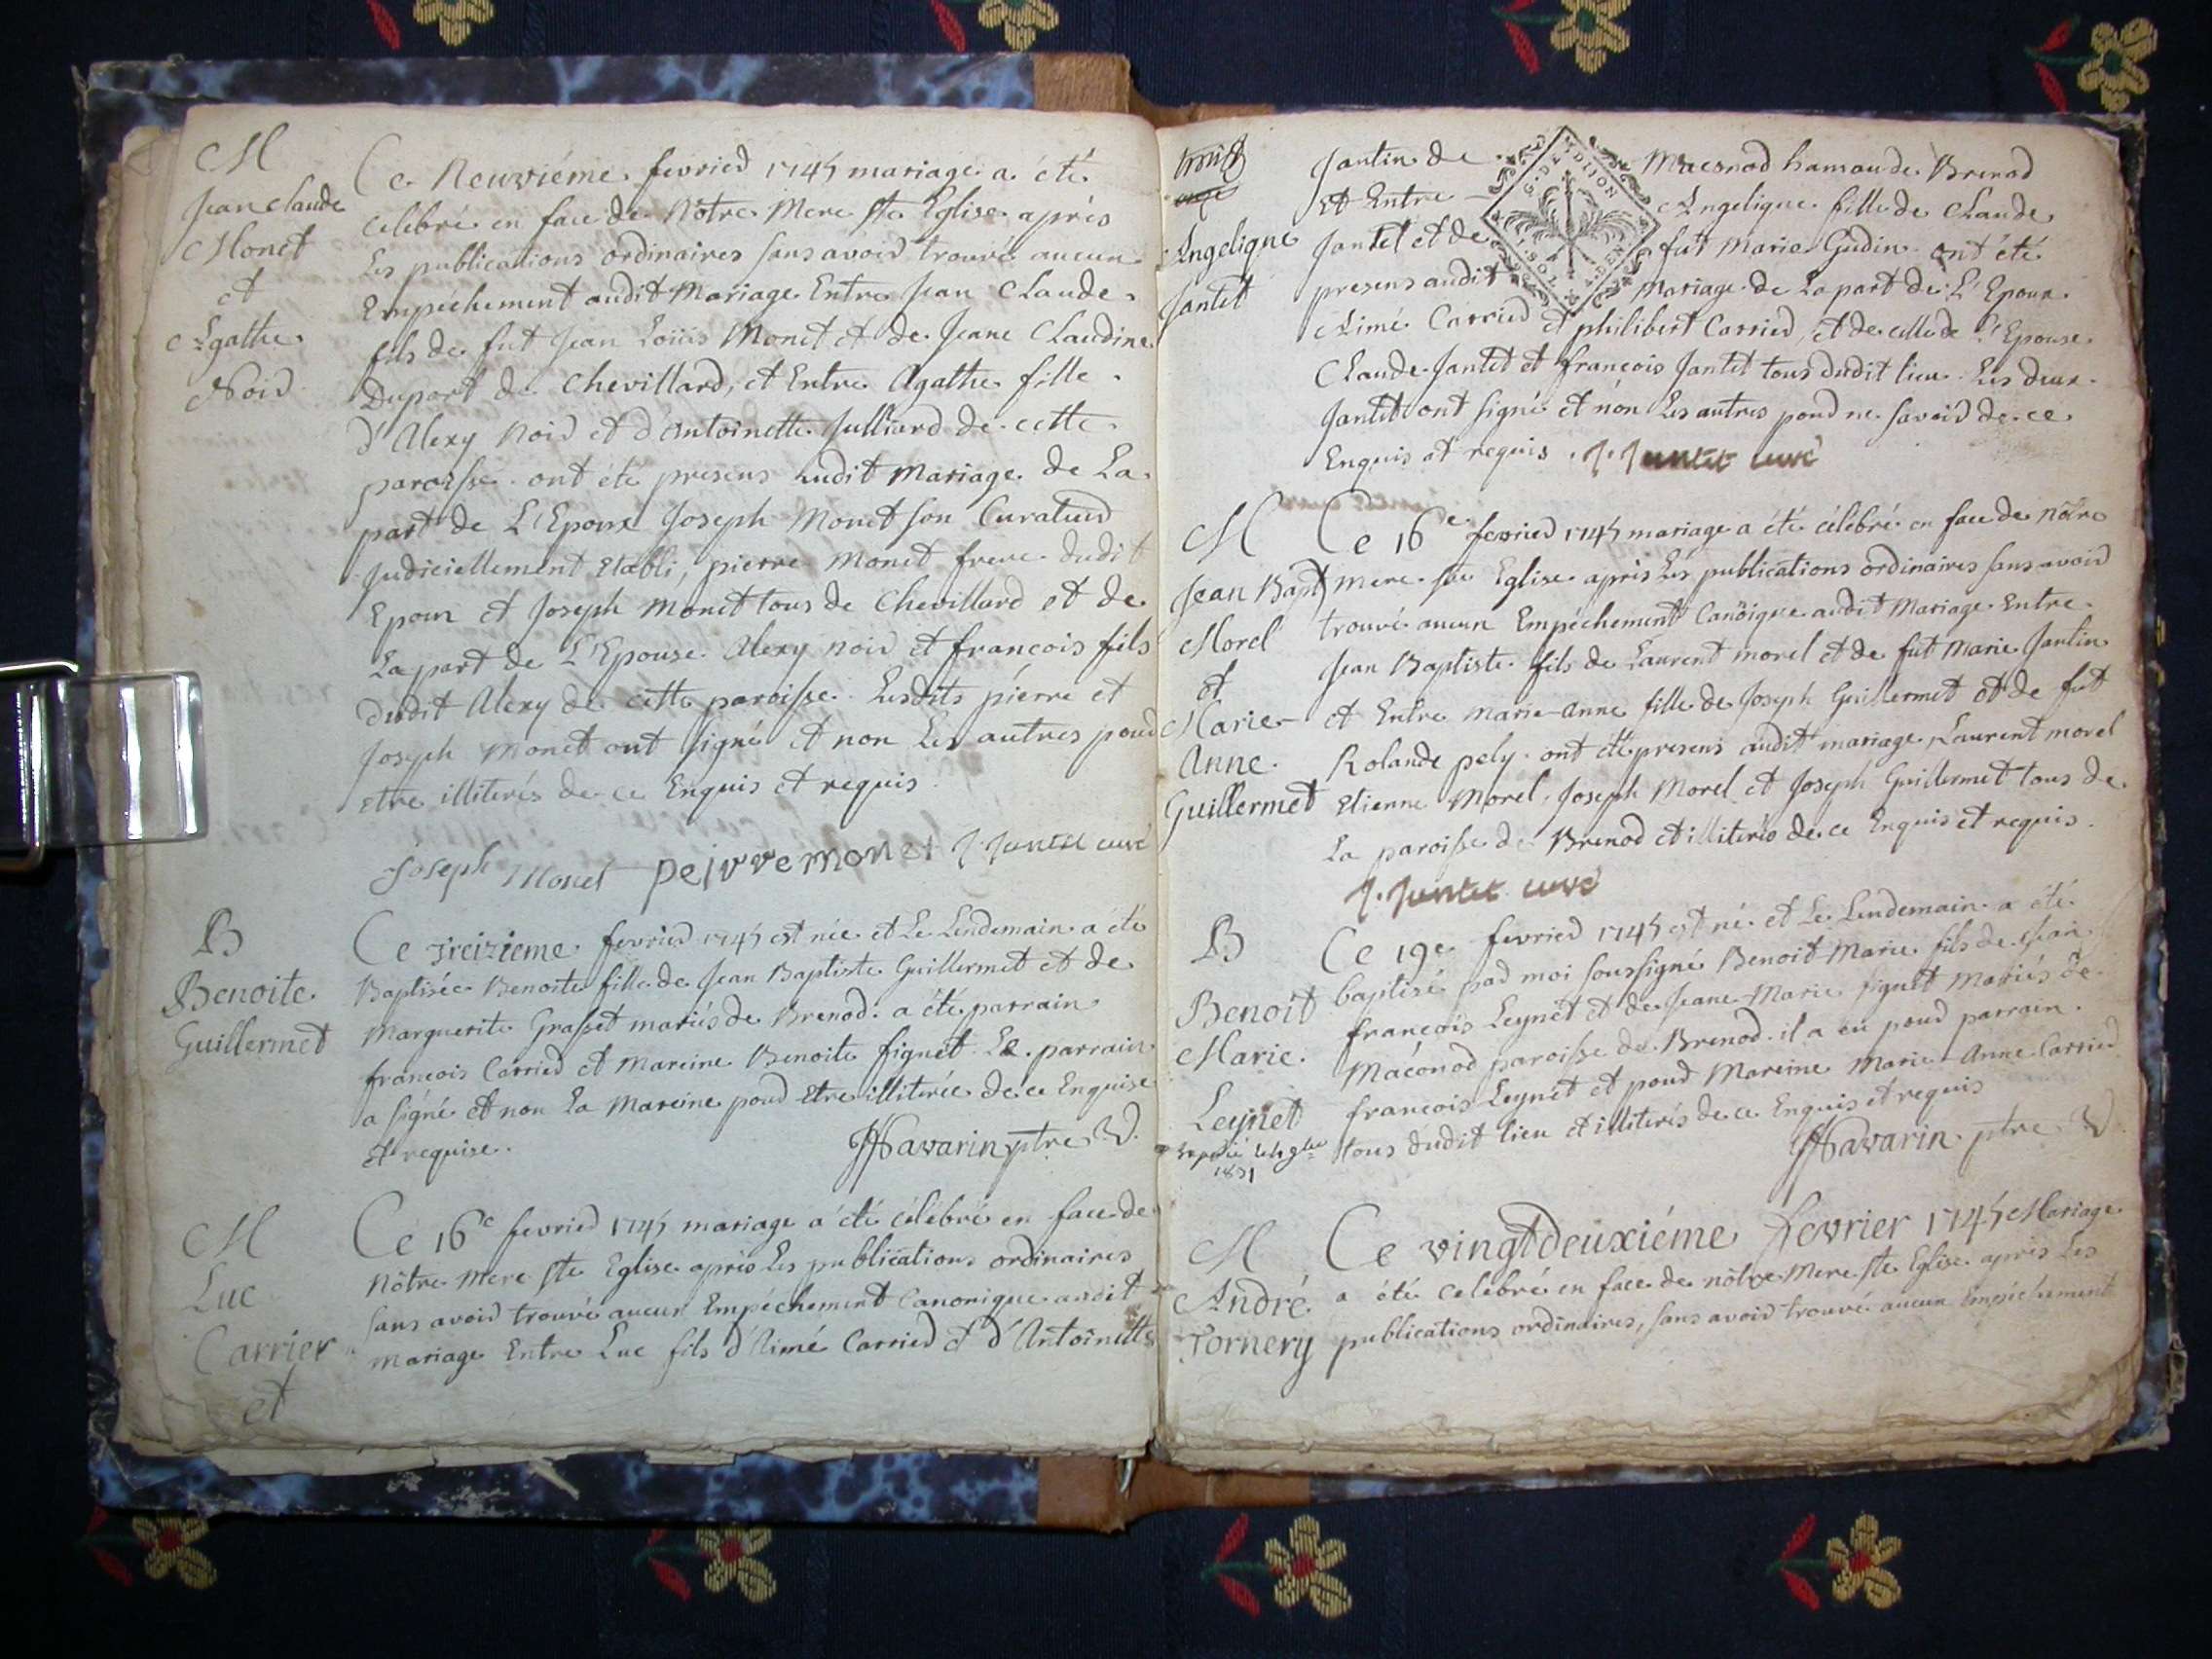 M
Jean claude
Monet
et
Agathe
Noir
Ce Neuviéme fevrier 1745 mariage a été
celebré en face de Nôtre Mere ste Eglise aprés
les publications ordinaires sans avoir trouvé aucun
Empéchement audit Mariage Entre Jean Claude
fils de fut Jean Loüis Monet et de Jeane Claudine
Duport de Chevillard, et Entre Agathe fille
d'Alexy Noir et d'Antoinette Julliard de cette
paroisse ont été presens audit Mariage de La
part de L'Epoux Joseph Monet son Curateur
Judiciellement Etabli, pierre Monet frere dudit
Epoux et Joseph Monet tous de Chevillard et de
La part de L'Epouse Alexy noir et francois fils
dudit Alexy de cette paroisse Lesdits pierre et
Joseph Monet ont signé et non Les autres pour
etre illiterés de ce Enquis et requis
Joseph Monet pejvvemonet J. Jantet curé
B
Benoite
Guillermet
Ce Treizieme fevrier 1745 est née et Le Lendemain a été
Baptisée Benoite fille de Jean Baptiste Guillermet et de
Marguerite Grasset mariés de Brenod a été parrain
francois Carrier et Mareine Benoite figuet Le parrain
a signé et non La Mareine pour Etre illiterée de ce Enquise
et requise. Havarin ptre V.
M
Luc
Carrier
et
Ce 16e fevrier 1745 mariage a été célébré en face de
Nôtre Mere ste Eglise aprés Les publications ordinaires
sans avoir trouvé aucun Empéchement Canonique audit
mariage Entre Luc fils d'Aimé Carrier et d'Antoinette
Angelique
Jantet
Jantin de Maconod hamau de Brenod
et Entre Angelique fille de Claude
Jantet et de fut Marie Gudin ont été
presens audit Mariage de La part de L'Epoux
Aimé Carrier et philibert Carrier, et de celle de L'Epouse
Claude Jantet et francois Jantet tous dudit lieu Les deux
Jantet ont signé et non Les autres pour ne savoir de ce
Enquis et requis. J. Jantet curé
G. DE DIJON
SOL
DEN
M
Jean Bapt
Morel
et
Marie-
Anne
Guillermet
Ce 16e fevrier 1745 mariage a été célébré en face de nôtre
mere ste Eglise aprés Les publications ordinaires sans avoir
trouvé aucun Empéchement Canoique audit Mariage Entre
Jean Baptiste fils de Laurent morel et de fut Marie Jantin
et Entre Marie-anne fille de Joseph Guillermet et de fut
Rolande pely ont été presens audit mariage, Laurent morel
Etienne Morel, Joseph Morel et Joseph Guillermet tous de
La paroisse de Brenod et illiterés de ce Enquis et requis
J. Jantet curé
B
Benoit
Marie
Leynet
1831
Ce 19e fevrier 1745 est né et Le Lendemain a été
baptisé par moi soussigné Benoit Marie fils de Jean
francois Leynet et de Jeane-Marie figuet Mariés de
Máconod paroisse de Brenod il a eu pour parrain
francois Leynét et pour Mareine Marie-Anne Carrier
tous dudit lieu et illiterés de ce Enquis et requis
Havarin ptre V
M
André
Tornery
Ce vingtdeuxiéme fevrier 1745 Mariage
a été celebré en face de nôtre Mere ste Eglise aprés Les
publications ordinaires, sans avoir trouvé aucun Empéchement